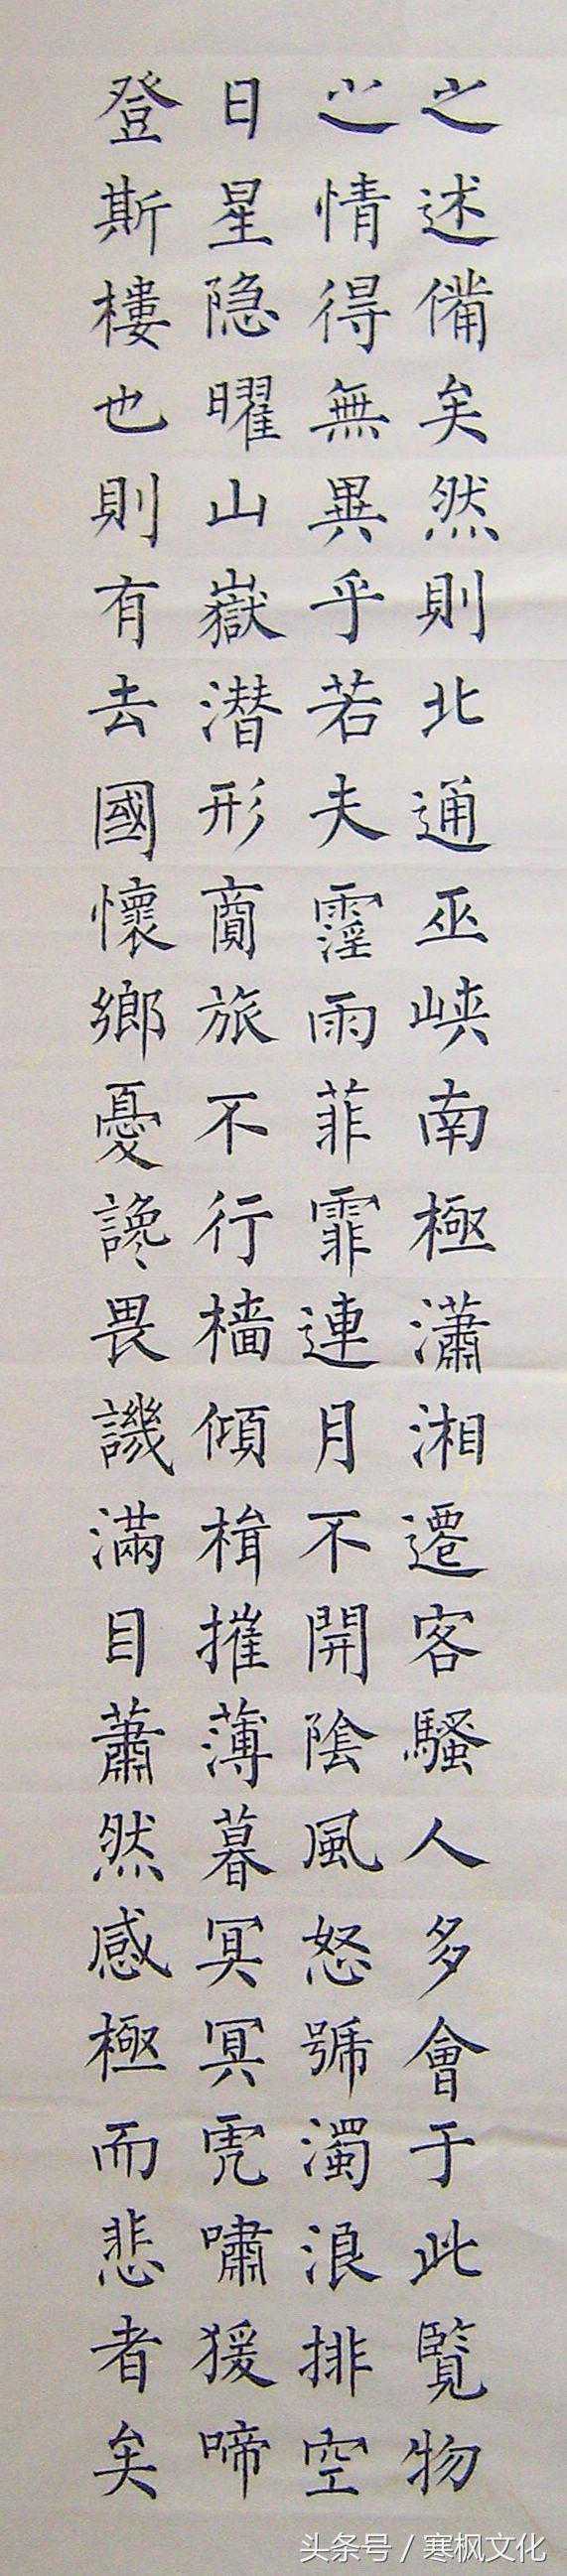 之述備矣然則北通巫峽南極瀟湘遷客騷人多會于此覽物
之情得無異乎若夫霪雨菲霏連月不開陰風怒號濁浪排空
日星隐曜山嶽潛形商旅不行檣傾楫摧薄暮冥冥虎嘯猨啼
登斯樓也則有去國懷鄉憂讒畏譏滿目蕭然感極而悲者矣
头条号 / 寒枫文化